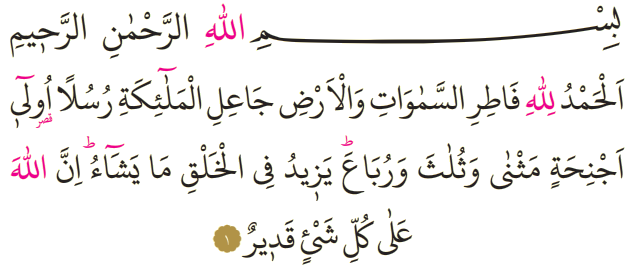 بِسْمِ اللّٰهِ الرَّحْمٰنِ الرَّح۪يمِ
اَلْحَمْدُ لِلّٰهِ فَاطِرِ السَّمٰوَاتِ وَالْاَرْضِ جَاعِلِ الْمَلٰٓئِكَةِ رُسُلًا اُو۬ل۪ٓي قصر
اَجْنِحَةٍ مَثْنٰى وَثُلٰثَ وَرُبَاعَۜ يَز۪يدُ فِى الْخَلْقِ مَا يَشَٓاءُۜ اِنَّ اللّٰهَ
عَلٰى كُلِّ شَىْءٍ قَد۪يرٌ ١